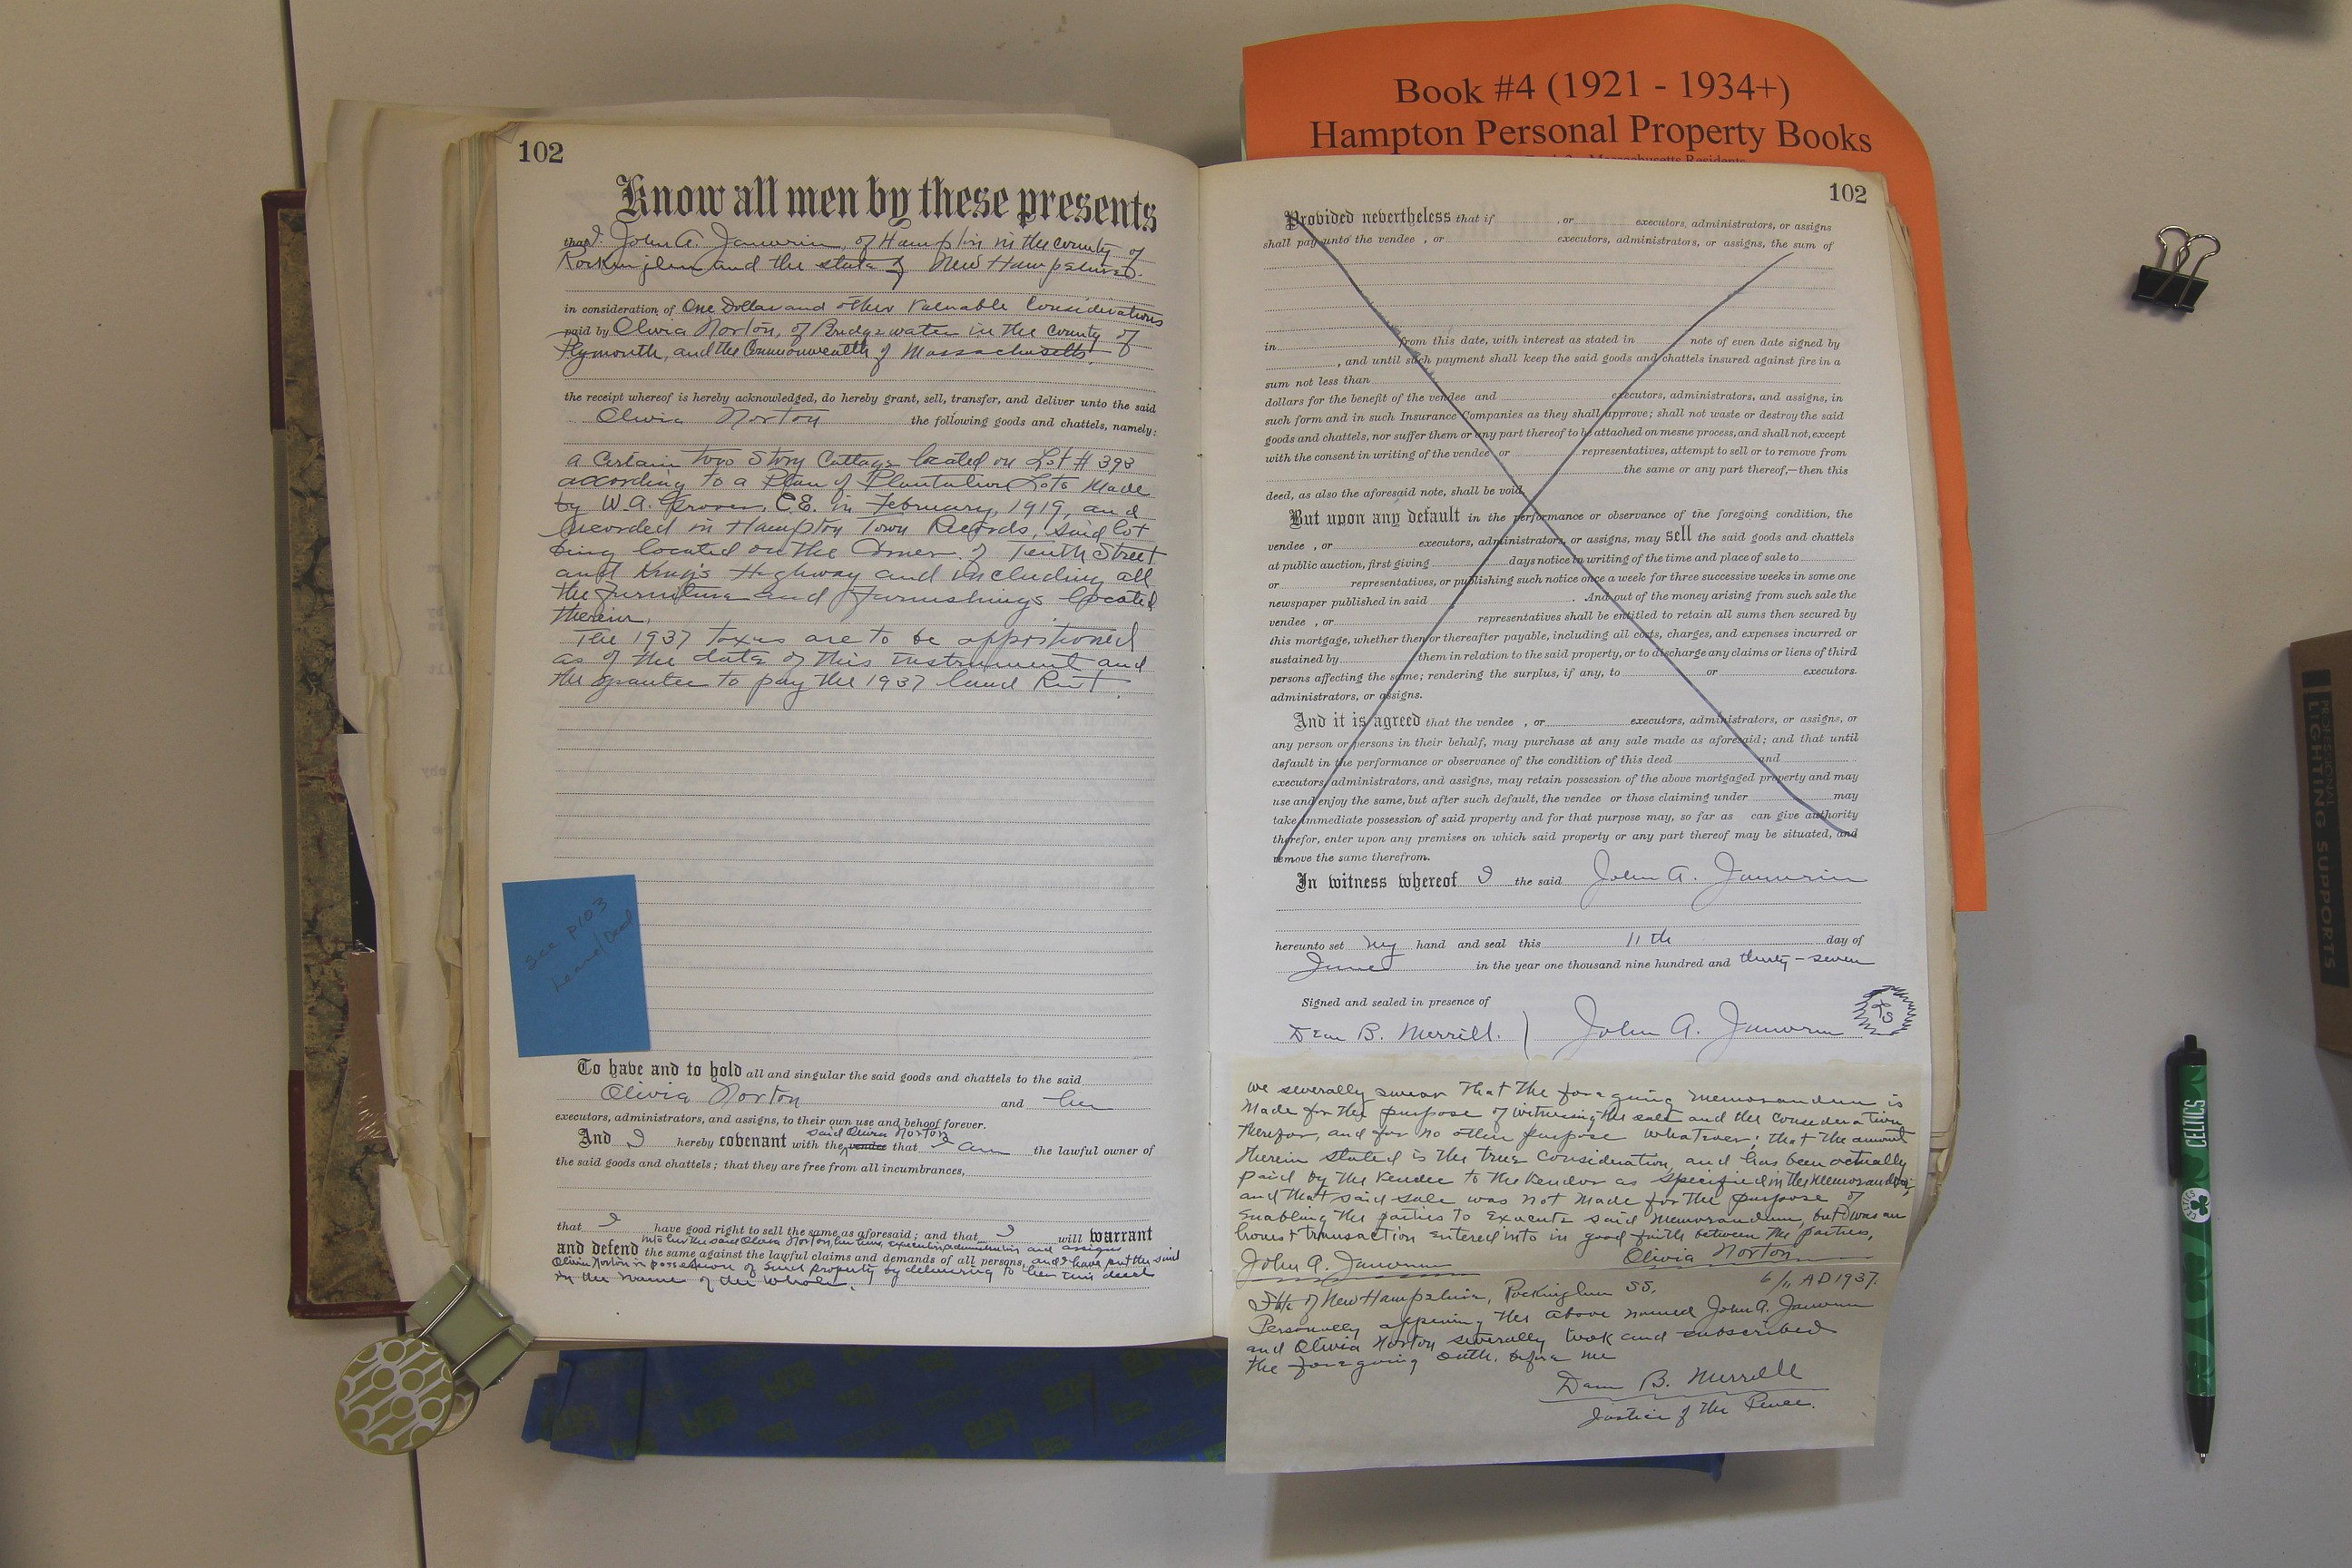 Book #4 (1921 - 1934+)
Hampton Personal Property Books
Massachusetts Residents
102
Know all men by these presents
that I, John A. Janvrin, of Hampton in the county of
Rockingham and the state of New Hampshire.
in consideration of One Dollar and other valuable Considerations
paid by Olivia Norton, of Bridgewater in the county of
Plymouth, and the Commonwealth of Massachusetts
the receipt whereof is hereby acknowledged, do hereby grant, sell, transfer, and deliver unto the said
Olivia Norton the following goods and chattels, namely:
a Certain two Story Cottage located on Lot # 393
according to a Plan of Plantation Lots Made
by W.A. Grover, C.E. in February, 1919, and
recorded in Hampton Town Records, said lot
being located on the Corner of Tenth Street
and King's Highway and including all
the furniture and furnishings located
therein.
The 1937 taxes are to be apportioned
as of the date of this instrument and
the grantee to pay the 1937 land Rent.
see p103
Leand/Deed
To have and to hold all and singular the said goods and chattels to the said
Olivia Norton and her
executors, administrators, and assigns, to their own use and behoof forever.
said Olivia Norton
And I hereby covenant with the vendee that I am the lawful owner of
the said goods and chattels; that they are free from all incumbrances,
that I have good right to sell the same as aforesaid; and that I will warrant
into her the said Olivia Norton, her heirs, executors, administrators and assigns
and defend the same against the lawful claims and demands of all persons, and I have put the said
Olivia Norton in possession of said property by delivering to her this deed
in the name of the whole.
102
Provided nevertheless that if , or executors, administrators, or assigns
shall pay unto the vendee , or executors, administrators, or assigns, the sum of
in from this date, with interest as stated in note of even date signed by
, and until such payment shall keep the said goods and chattels insured against fire in a
sum not less than
dollars for the benefit of the vendee and executors, administrators, and assigns, in
such form and in such Insurance Companies as they shall approve; shall not waste or destroy the said
goods and chattels, nor suffer them or any part thereof to be attached on mesne process, and shall not, except
with the consent in writing of the vendee or representatives, attempt to sell or to remove from
the same or any part thereof,—then this
deed, as also the aforesaid note, shall be void.
But upon any default in the performance or observance of the foregoing condition, the
vendee , or executors, administrators, or assigns, may sell the said goods and chattels
at public auction, first giving days notice in writing of the time and place of sale to
or representatives, or publishing such notice once a week for three successive weeks in some one
newspaper published in said . And out of the money arising from such sale the
vendee , or representatives shall be entitled to retain all sums then secured by
this mortgage, whether then or thereafter payable, including all costs, charges, and expenses incurred or
sustained by them in relation to the said property, or to discharge any claims or liens of third
persons affecting the same; rendering the surplus, if any, to or executors.
administrators, or assigns.
And it is agreed that the vendee , or executors, administrators, or assigns, or
any person or persons in their behalf, may purchase at any sale made as aforesaid; and that until
default in the performance or observance of the condition of this deed and
executors, administrators, and assigns, may retain possession of the above mortgaged property and may
use and enjoy the same, but after such default, the vendee or those claiming under may
take immediate possession of said property and for that purpose may, so far as can give authority
therefor, enter upon any premises on which said property or any part thereof may be situated, and
remove the same therefrom.
In witness whereof I the said John A. Janvrin
hereunto set my hand and seal this 11th day of
June in the year one thousand nine hundred and thirty-seven
Signed and sealed in presence of
Dean B. Merrill. ) John A. Janvrin LS
We severally swear that the foregoing memorandum is
Made for the purpose of witnessing the sale and the consideration
therefor, and for no other purpose whatever; that the amount
therein stated is the true consideration, and has been actually
paid by the Vendee to the Vendor as specified in the Memorandum,
and that said sale was not made for the purpose of
enabling the parties to execute said memorandum, but was an
honest transaction entered into in good faith between the parties,
John A. Janvrin Olivia Norton
State of New Hampshire, Rockingham SS. 6/11 AD 1937.
Personally appearing the above named John A. Janvrin
and Olivia Norton severally took and subscribed
the foregoing oath. before me
Dean B. Merrill
Justice of the Peace.
CELTICS
CELTICS
PROFESSIONAL
LIGHTING SUPPORTS